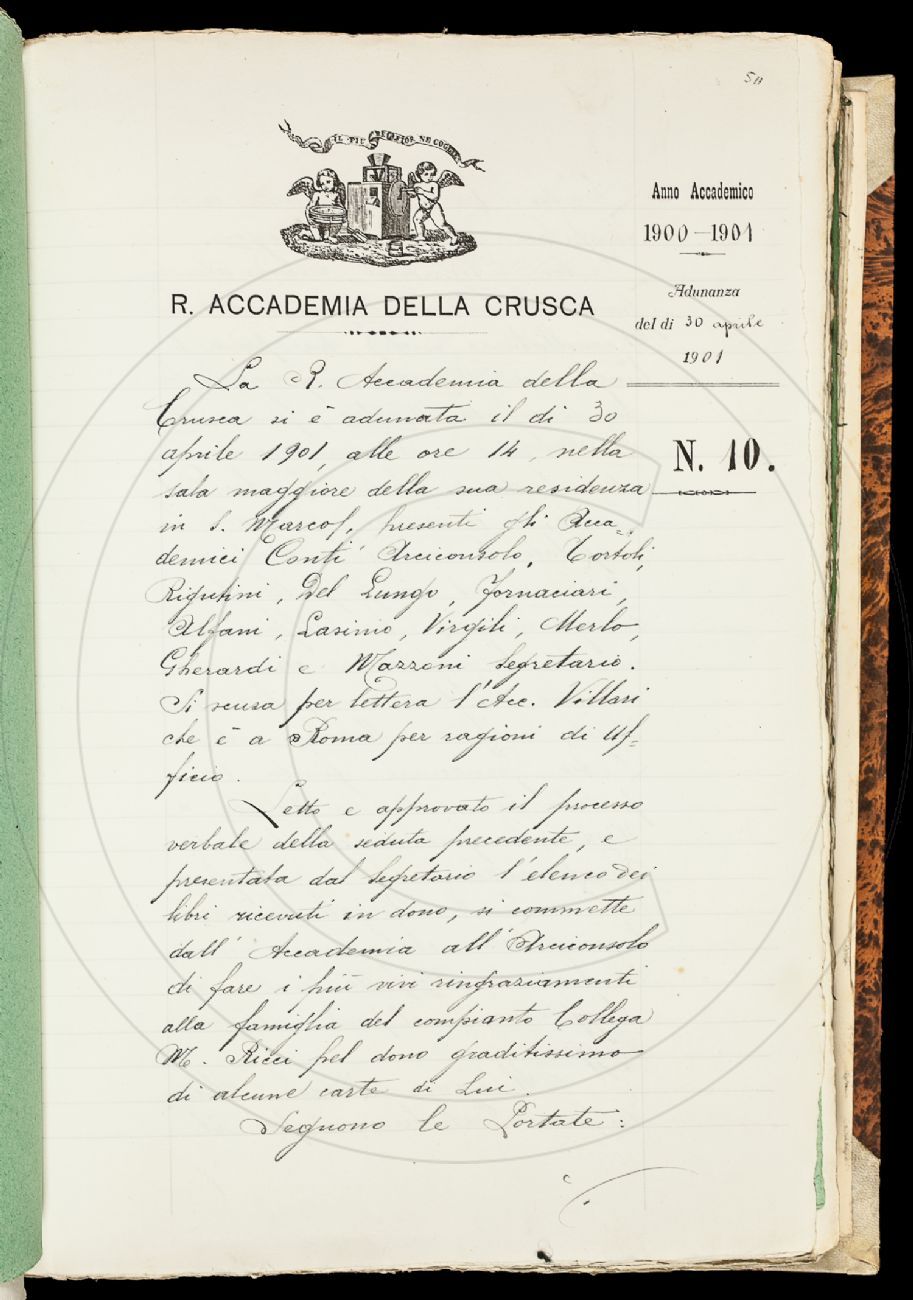 58
IL PIÙ BEL FIOR NE COGLIE
Anno Accademico
1900-1901
R. ACCADEMIA DELLA CRUSCA
Adunanza
del dì 30 aprile
1901
N. 10.
La R. Accademia della
Crusca si è adunata il dì 30
aprile 1901, alle ore 14, nella
sala maggiore della sua residenza
in S. Marco, presenti gli Acca-
demici Conti Arciconsolo, Tortoli,
Rigutini, Del Lungo, Fornaciari,
Alfani, Lasinio, Virgili, Merlo,
Gherardi e Mazzoni Segretario.
Si scusa per lettera l'Acc. Villari
che è a Roma per ragioni di Uf-
ficio.
Letto e approvato il processo
verbale della seduta precedente, e
presentata dal Segretario l'elenco dei
libri ricevuti in dono, si commette
dall'Accademia all'Arciconsolo
di fare i più vivi ringraziamenti
alla famiglia del compianto Collega
M. Ricci pel dono graditissimo
di alcune carte di Lui.
Seguono le Portate: